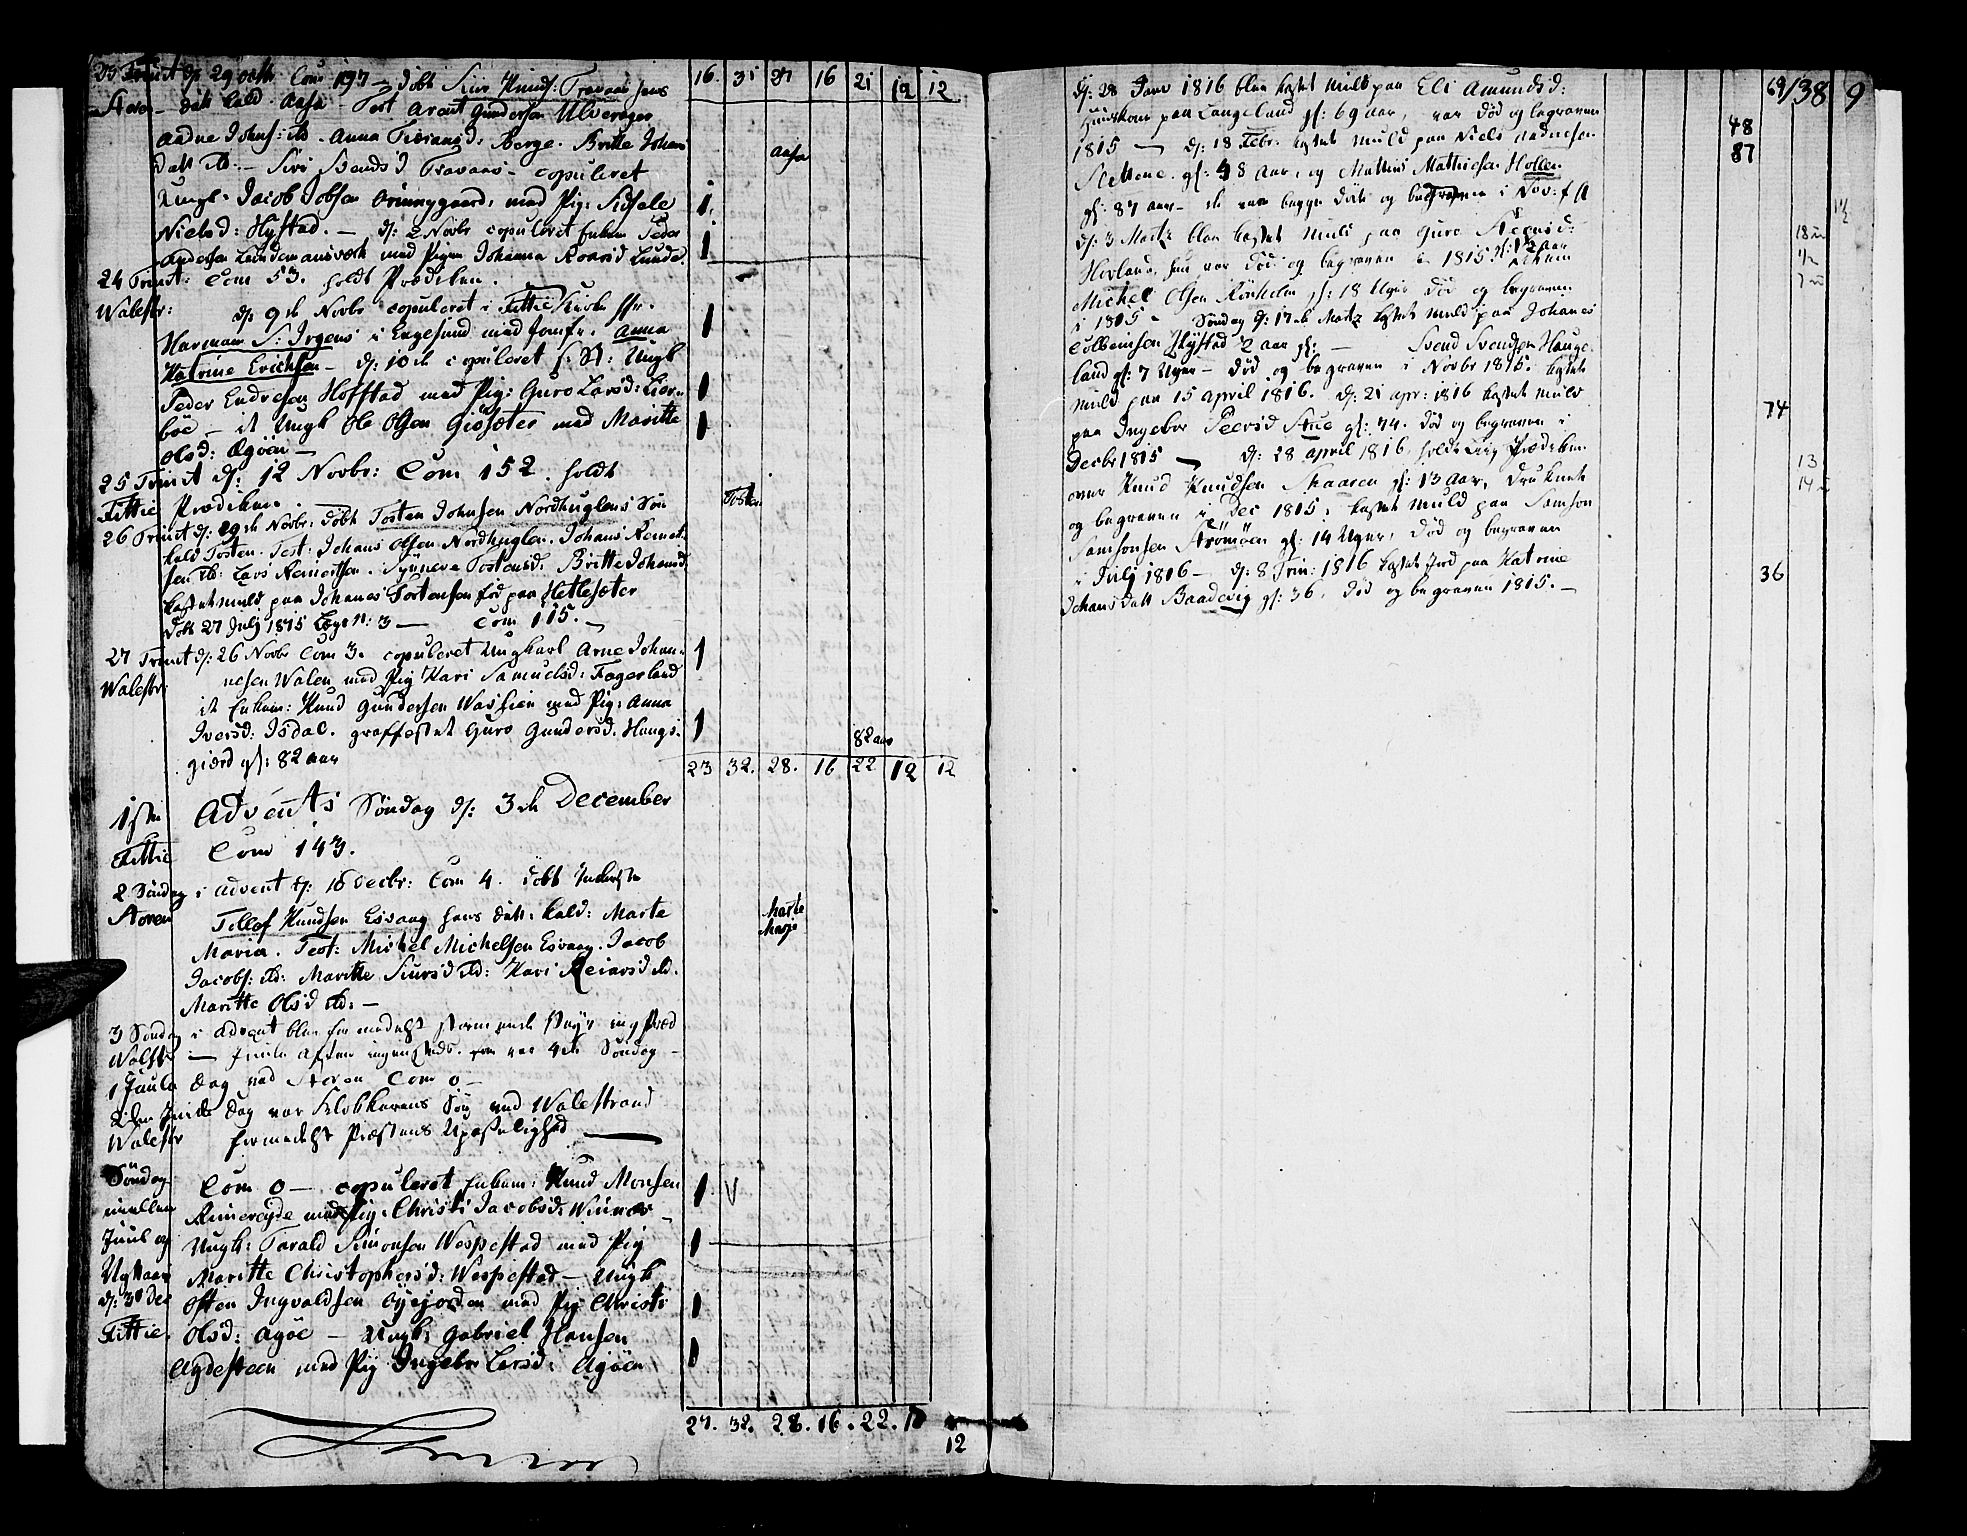 23 Trinit d: 29 octb Com 197 – døbt Siur Knuds: Travaas hans
Støren – datt kald Aasa – Test Arent Gundersen Ulversøer
Aadne Johns: ib. Anna Berge. Britte Johans
datt ib – Siri Bendsd Travaas – copuleret
Ungk. Jacob Jobsen Grinnygaard, med Pig: Sidsele
Nielsd: Hystad. – d: 2 Novbr copuleret Enkem Peder
Andersen med Pigen Johanna Roarsd Lunde.
24 Trinit: Com 53. holdt Prædiken.
Walestr: d: 9de Novbr copuleret i Fittie Kirke
Harman S: Irgens i Engesund med Jomfr. Anna
Katrine Erichsen – d: 10de copuleret Ungk
Peder Endresen Hofstad med Pig: Guro Larsd: Lier-
bøe – it Ungk Ole Olsen Giøsæter med Maritte
Olsd: Agøen –
25 Trinit d: 12 Novbr: Com 152 holdt
Fittie Prædiken.
26 Trinit d: 19de Novbr. døbt Tosten Johnsen Nordhuglens Søn
kald Tosten. Test. Johans Olsen Nordhuglen. Johans Reinert-
sen ib: Lars Reinertsen. Synneve Tostensd. Britte Johansd
kastet muld paa Johanes Tortensen fød paa Hetlesæter
døbt 27 July 1815 Læge N: 3 – Com 115. –
27 Trinit d: 26 Novbr Com 3. copuleret Ungkarl Arne Johan-
Walestr: nesen Walen med Pig Kari Samuelsd: Fagerland
it Enkem: Knud Gundersen med Pig: Anna
Iversd: Isdal. graffestet Guro Gundersd. Haugs-
giærd gl: 82 aar
1ste Advents Søndag d: 3de December
Fittie Com 143.
2 Søndag i advent d: 10 Decbr: Com 4. døbt Inderste
Støren Tellof Knudsen Esvaag hans datt: kald: Marte
Maria. Test: Michel Michelsen Esvaag. Jacob
Jacobs: ib: Maritte Siursd ib: Kari Reiarsd ib.
Maritte Olsd ib: –
3 Søndag i advent blev formedelst stormende ing Præd
Walstr – Juule aften ingensteds. som var 4de Søndag –
1 Juule Dag ved Støren Com 0 –
2den Juule Dag var Klokkerens Søn ved Walestrand
Walestr formedelst Præstens Upaselighed
Søndag Com 0 – copuleret Enkem: Knud Monsen
imellem Rimereyde med Pig: Christi Jacobsd: Winnæs –
Juul og Ungk: Tarald Simonsen Wespestad med Pig
Nytaar Maritte Christophersd: Wespestad – Ungk
d: 31 Dec Osten Ingvaldsen Øyejorden med Pig Christi
Fittie. Olsd: Agøe – Ungk: Gabriel Hansen
Agdesteen med Pig Ingebr Larsd: Agøen
16. 31 27 16 21 12 12
Aasa
Tosten
82 aar
23 32. 28. 16 22 12 12
Marte
Maria
27. 32. 28. 16. 22. 12
12
d: 28 Janr 1816 blev kastet muld paa Eli Amundsd:
Huuskone paa Langeland gl: 69 aar, var død og begraven
1815 – d: 18 Febr. kastet muld paa Niels Aadnesen
Slettene. gl: 48 Aar, og Mattis Mathiesen Hollen
gl: 87 aar – de vare begge døde og begraven i Nov: f A
d: 3 Martz blev kastet muld paa Guro
Hevland, hun var død og begraven 1815.
Michel Olsen Rønholm gl: 18 Uger død og begraven
i 1815 – Søndag d: 17de Martz kastet muld paa Johanes
Colbeinsen Hystad 2 aar gl: – Svend Svendsen Hauge-
land gl: 7 Uger – død og begraven i Novbr 1815. kastet
muld paa 15 april 1816. d: 21 apr: 1816 kastet muld
paa Ingebor Peersd Stue gl: 74. død og begraven i
Decbr 1815 – d: 28 april 1816 holdt Liig Prædiken
over Knud Knudsen Skaaren gl: 13 Aar, druknet
og begraven i Dec 1815, kastet muld paa Samson
Samsonsen Strømøen gl: 14 Uger, død og begraven
i July 1816 – d: 8 Trin: 1816 kastet Jord paa Katrine
Johans datt Baadevig gl: 36. død og begraven 1815. –
69/38 9
48
87
18 u
7 u
74
13
14 u
36